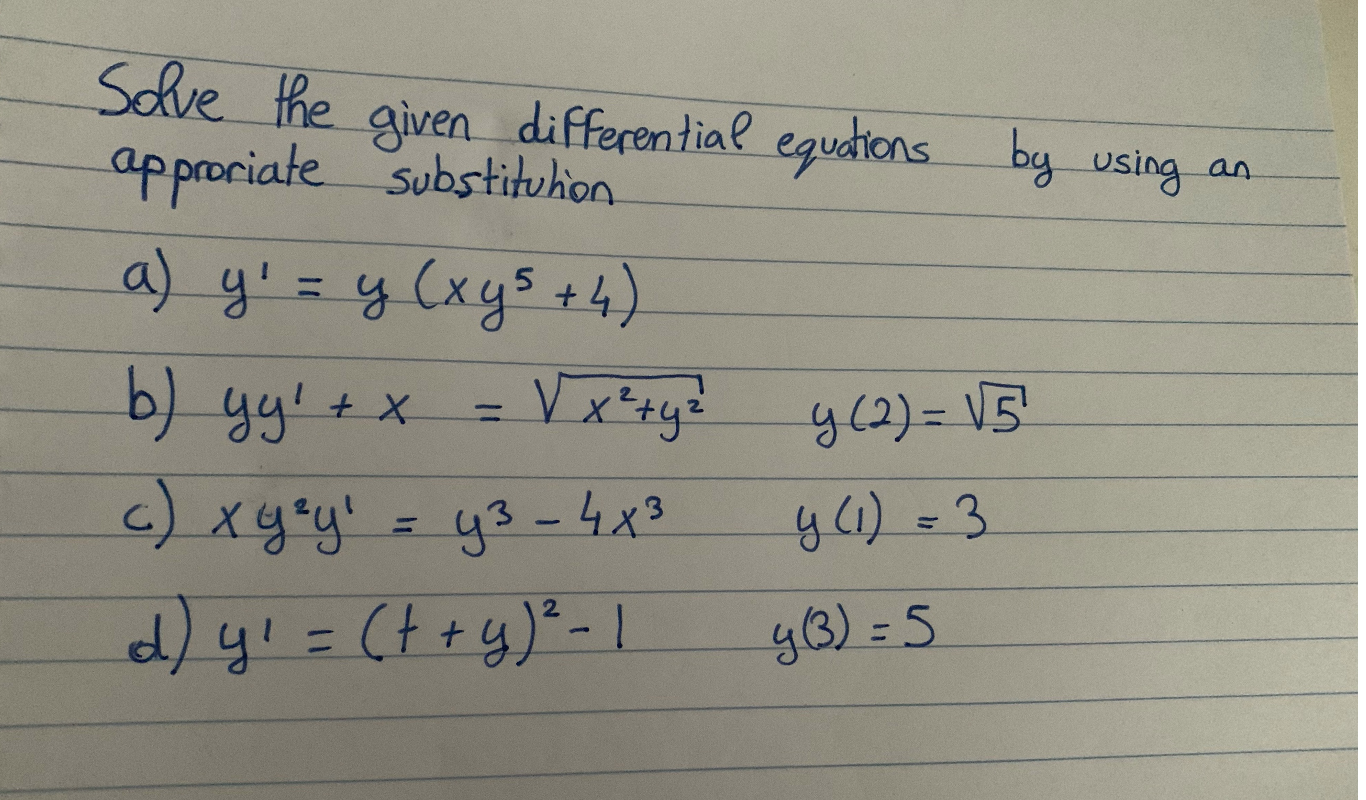 Solve the given differential equations by using an
approriate substitution
a) y' = y (xy⁵ + 4)
b) yy' + x = √(x²+y²) y(2) = √5
c) xy²y' = y³ - 4x³ y(1) = 3
d) y' = (t + y)² - 1 y(3) = 5